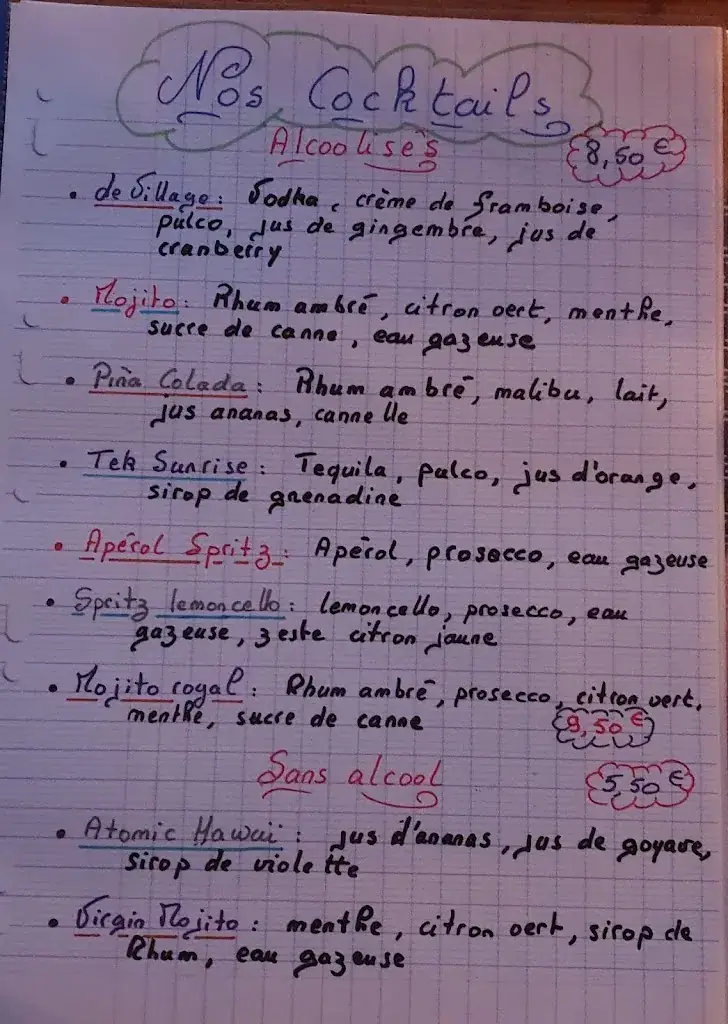 Nos Cocktails
Alcoolisés
8,50 €
• de Village : Vodka, crème de framboise,
pulco, jus de gingembre, jus de
cranberry
• Mojito : Rhum ambré, citron vert, menthe,
sucre de canne, eau gazeuse
• Piña Colada : Rhum ambré, malibu, lait,
jus ananas, cannelle
• Tek Sunrise : Tequila, pulco, jus d'orange,
sirop de grenadine
• Apérol Spritz : Apérol, prosecco, eau gazeuse
• Spritz lemoncello : lemoncello, prosecco, eau
gazeuse, zeste citron jaune
• Mojito royal : Rhum ambré, prosecco, citron vert,
menthe, sucre de canne
9,50 €
Sans alcool
5,50 €
• Atomic Hawaï : jus d'ananas, jus de goyave,
sirop de violette
• Virgin Mojito : menthe, citron vert, sirop de
Rhum, eau gazeuse